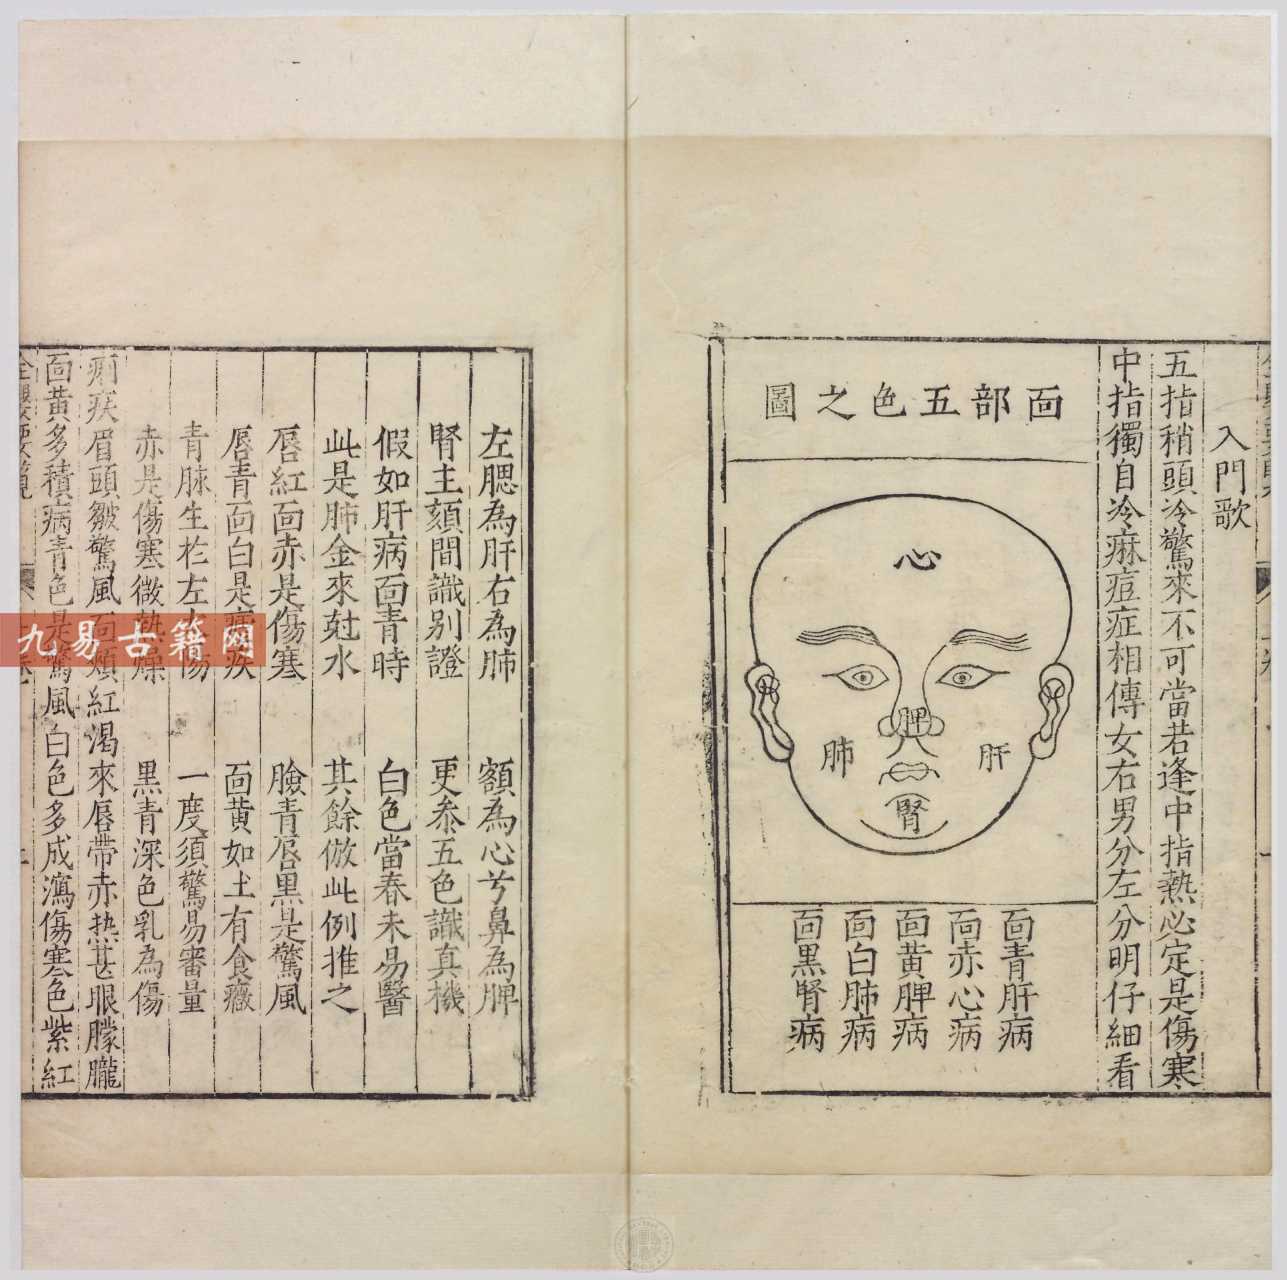 入門歌
五指稍頭冷驚來不可當若逢中指熱必定是傷寒
中指獨自冷痳痘症相傳女右男分左分明仔細看
面部五色之圖
心
肝
脾
肺
腎
面青肝病
面赤心病
面黃脾病
面白肺病
面黑腎病
左腮為肝右為肺 額為心兮鼻為脾
腎主頦間識別證 更叅五色識真機
假如肝病面青時 白色當春未易醫
此是肺金來尅水 其餘倣此例推之
唇紅面赤是傷寒 臉青唇黑是驚風
唇青面白是疾 面黃如土有食癥
青脉生於左 傷 一度須驚易審量
赤是傷寒微熱燥 黑青深色乳為傷
痢疾眉頭皺驚風面頰紅渴來唇帶赤热甚眼朦朧
面黃多積病青色是驚風白色多成瀉傷寒色紫紅
九易古籍网